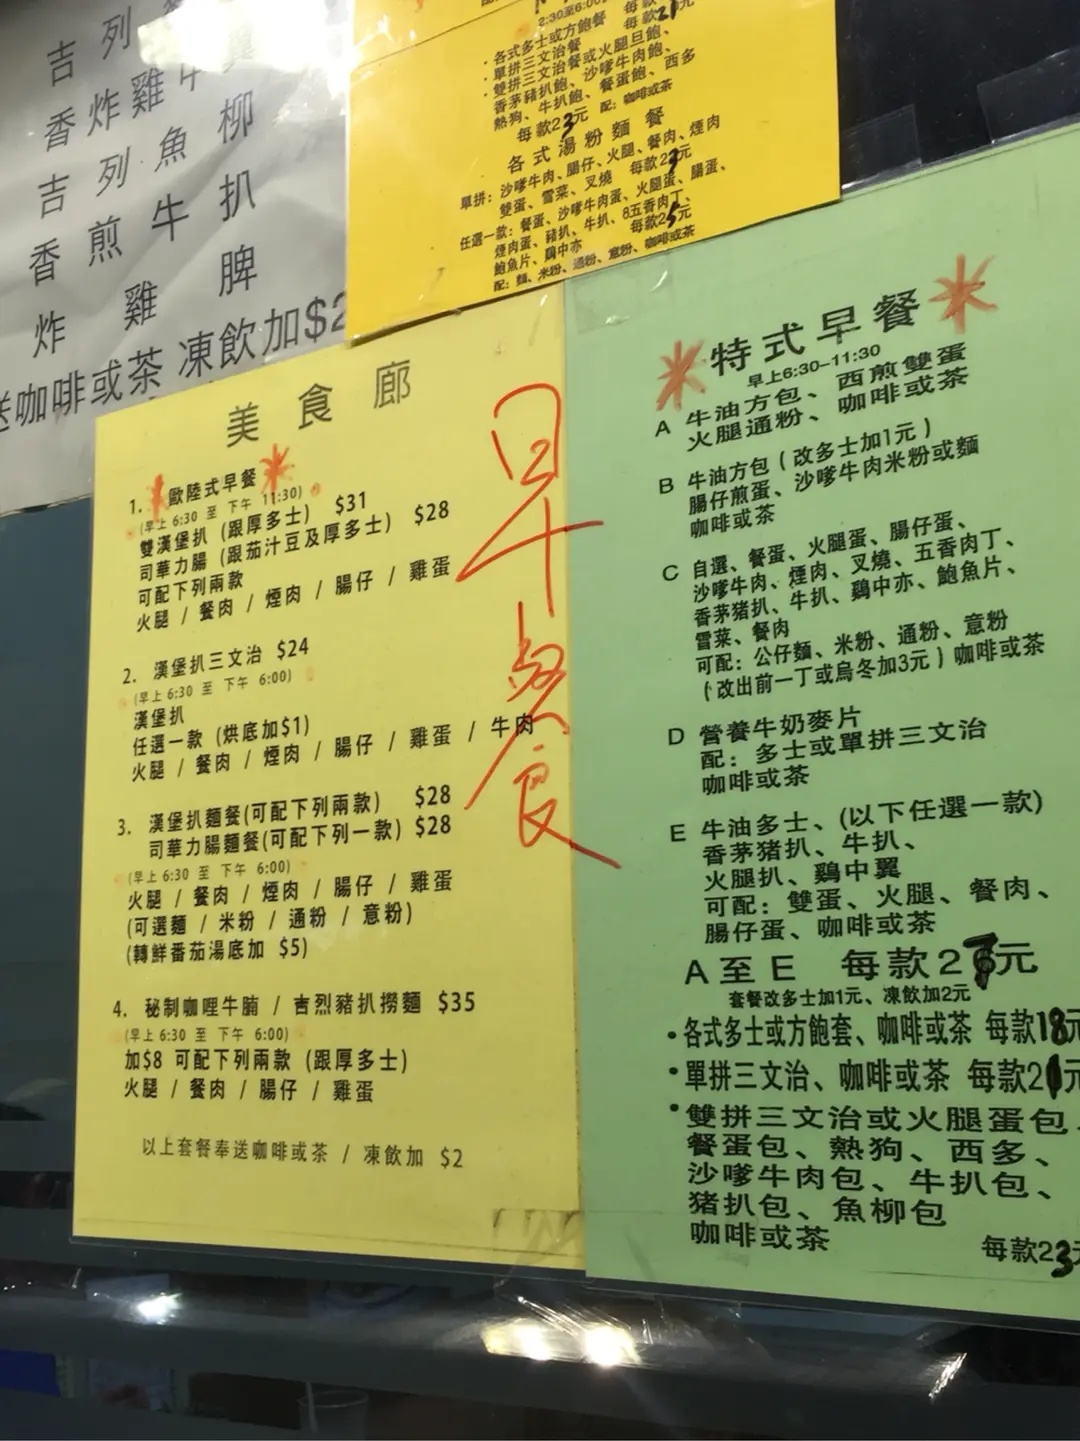 吉列
香炸雞中翼
吉列魚柳
香煎牛扒
炸雞脾
送咖啡或茶 凍飲加$2
2:30至6:00
・各式多士或方飽餐 每款
・單拼三文治餐 每款21元
・雙拼三文治餐或火腿旦飽、
香茅豬扒飽、沙嗲牛肉飽、
熱狗、牛扒飽、餐蛋飽、西多
每款23元 配: 咖啡或茶
各式湯粉麵餐
單拼: 沙嗲牛肉、腸仔、火腿、餐肉、煙肉
雙蛋、雪菜、叉燒 每款23元
任選一款: 餐蛋、沙嗲牛肉蛋、火腿蛋、腸蛋、
煙肉蛋、豬扒、牛扒、8五香肉丁、
鮑魚片、鷄中亦 每款25元
配: 麵、米粉、通粉、意粉、咖啡或茶
美食廊
早餐
1. 歐陸式早餐
(早上 6:30 至 下午 11:30)
雙漢堡扒 (跟厚多士) $31
司華力腸 (跟茄汁豆及厚多士) $28
可配下列兩款
火腿 / 餐肉 / 煙肉 / 腸仔 / 雞蛋
2. 漢堡扒三文治 $24
(早上 6:30 至 下午 6:00)
漢堡扒
任選一款 (烘底加$1)
火腿 / 餐肉 / 煙肉 / 腸仔 / 雞蛋 / 牛肉
3. 漢堡扒麵餐(可配下列兩款) $28
司華力腸麵餐(可配下列一款) $28
(早上 6:30 至 下午 6:00)
火腿 / 餐肉 / 煙肉 / 腸仔 / 雞蛋
(可選麵 / 米粉 / 通粉 / 意粉)
(轉鮮番茄湯底加 $5)
4. 秘制咖哩牛腩 / 吉烈豬扒撈麵 $35
(早上 6:30 至 下午 6:00)
加$8 可配下列兩款 (跟厚多士)
火腿 / 餐肉 / 腸仔 / 雞蛋
以上套餐奉送咖啡或茶 / 凍飲加 $2
特式早餐
早上6:30-11:30
A 牛油方包、西煎雙蛋
火腿通粉、咖啡或茶
B 牛油方包 (改多士加1元)
腸仔煎蛋、沙嗲牛肉米粉或麵
咖啡或茶
C 自選、餐蛋、火腿蛋、腸仔蛋、
沙嗲牛肉、煙肉、叉燒、五香肉丁、
香茅豬扒、牛扒、鷄中亦、鮑魚片、
雪菜、餐肉
可配: 公仔麵、米粉、通粉、意粉
(改出前一丁或烏冬加3元) 咖啡或茶
D 營養牛奶麥片
配: 多士或單拼三文治
咖啡或茶
E 牛油多士、(以下任選一款)
香茅猪扒、牛扒、
火腿扒、鷄中翼
可配: 雙蛋、火腿、餐肉、
腸仔蛋、咖啡或茶
A至E 每款27元
套餐改多士加1元、凍飲加2元
・各式多士或方飽套、咖啡或茶 每款18元
・單拼三文治、咖啡或茶 每款21元
・雙拼三文治或火腿蛋包、
餐蛋包、熱狗、西多、
沙嗲牛肉包、牛扒包、
猪扒包、魚柳包
咖啡或茶
每款23元